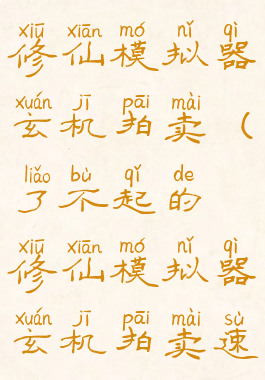 xiū xiān mó nǐ qì
修仙模拟器
xuán jī pāi mài
玄机拍卖（
liǎo bù qǐ de
了不起的
xiū xiān mó nǐ qì
修仙模拟器
xuán jī pāi mài sù
玄机拍卖速